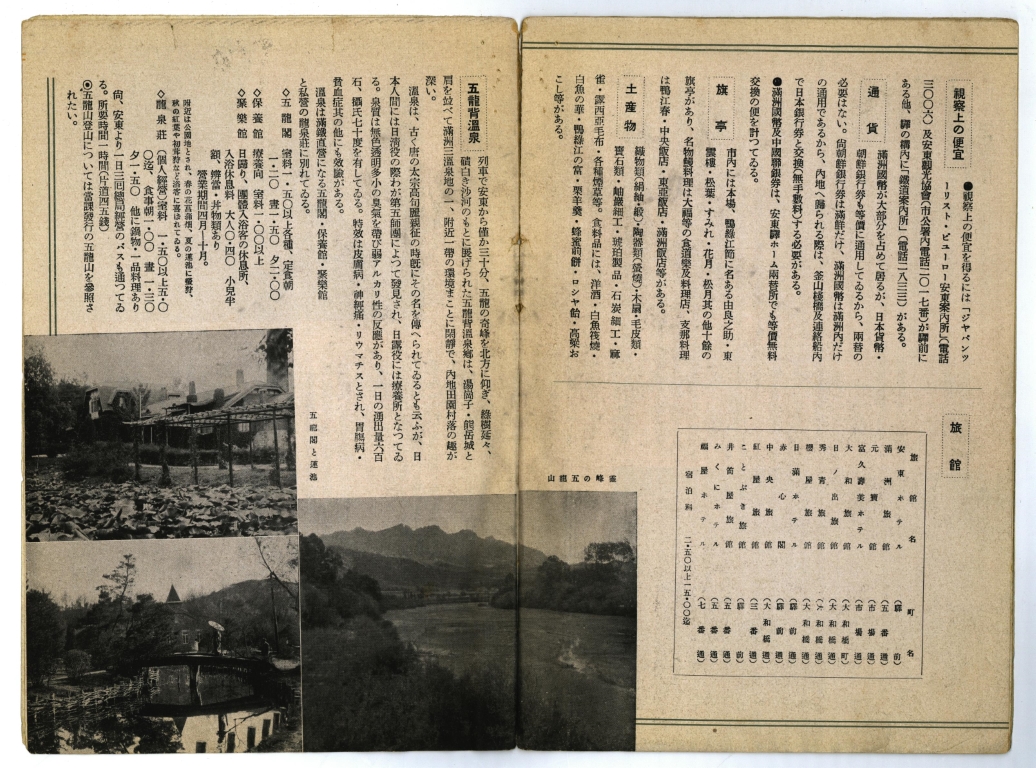 視察上の便宜
●視察上の便宜を得るには「ジヤパンツ
ーリスト・ビューロー安東案内所」(電話
三〇〇六)及安東觀光協會(市公署内電話二〇一七番)が驛前に
ある他、驛の構内に「鐵道案内所」(電話二八三三)がある。
通貨
滿洲國幣が大部分を占めて居るが、日本貨幣・
朝鮮銀行券も等價に通用してゐるから、兩替の
必要はない。尚朝鮮銀行券は滿鮮だけ、滿洲國幣は滿洲内だけ
の通用であるから、内地へ歸られる際は、釜山棧橋及連絡船内
で日本銀行券と交換(無手數料)する必要がある。
●滿洲國幣及中國聯銀券は、安東驛ホーム兩替所でも等價無料
交換の便を計つてゐる。
旗亭
市内には本場、鴨綠江節に名ある由良之助・東
雲樓・松葉・すみれ・花月・松月其の他十餘の
旗亭があり、名物鰻料理は大福等の食道樂及料理店、支那料理
は鴨江春・中央飯店・東亞飯店・滿洲飯店等がある。
土產物
織物類(絹紬・緞)・陶器類(螢燒)・木扇・毛皮類・
寶石類・岫巖細工・琥珀製品・石炭細工・麻
雀・露西亞毛布・各種煙草等。食料品には、洋酒・白魚筏燒・
白魚の華・鴨綠江の富・栗羊羹・蜂蜜煎餅・ロシヤ飴・高粱お
こし等がある。
旅館
旅館名 町名
安東ホテル (驛前)
滿洲旅館 (五番通)
元寶館 (市場通)
富久壽美ホテル (市場通)
大和旅館 (大和橋町)
日ノ出旅館 (大和橋通)
秀青旅館 (大和橋通)
櫻屋旅館 (大和橋通)
日滿ホテル (驛前)
赤心閣 (驛前)
中央旅館 (大和橋通)
紅屋旅館 (三番通)
ことぶき旅館 (驛前)
井筒屋旅館 (五番通)
みくにホテル (五番通)
鶴屋ホテル (七番通)
宿泊料 二・五〇以上一五・〇〇迄
靈峰の五龍山
五龍背溫泉
列車で安東から僅か三十分、五龍の奇峰を北方に仰ぎ、綠樹延々、
磧白き沙河のもとに展げられた五龍背溫泉鄉は、湯崗子・熊岳城と
肩を竝べて滿洲三溫泉地の一、附近一帶の環境まことに閑靜で、内地田園村落の趣が
深い。
溫泉は、古く唐の太宗高句麗親征の時既にその名を傳へられてゐるとも云ふが、日
本人間には日清役の際わが第五師團によつて發見され、日露役には療養所となつてゐ
る。泉質は無色透明多小の臭氣を帶び弱アルカリ性の反應があり、一日の湧出量六百
石、攝氏七十度を有してゐる。特效は皮膚病・神經痛・リウマチスとされ、胃腸病・
貧血症其の他にも效驗がある。
溫泉は滿鐵直營になる五龍閣・保養館・聚樂館
と私營の龍泉莊に別れてゐる。
◇五龍閣 室料一・五〇以上各種、定食朝
一・二〇 晝一・五〇 夕二・〇〇
◇保養館 療養向 室料一・〇〇以上
◇聚樂館 日歸り、團體入浴客の休息所、
入浴休息料 大人〇・四〇 小兒半
額、辨當・丼物類あり
營業期間四月―十月。
附近は公園地とされ、春の花萬朶、夏の蓮池に螢狩、
秋の紅葉や初茸狩など浴客に喜ばれてゐる。
◇龍泉莊 (個人經營)室料 一・五〇以上五・〇
〇迄、食事朝一・〇〇 晝一・三〇
夕一・五〇 他に鍋物・一品料理あり
尚、安東より一日三回總局經營のバスも通つてゐ
る。所要時間一時間(片道四五錢)
◉五龍山登山については當課發行の五龍山を參照さ
れたい。
五龍閣と蓮池